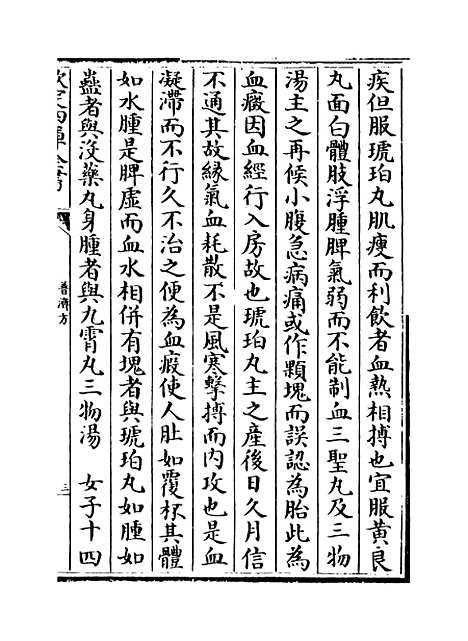 疾但服琥珀丸肌瘦而利飲者血熱相搏也宜服黄良
丸面白體肢浮腫脾氣弱而不能制血三聖丸及三物
湯主之再候小腹急病痛或作顆塊而誤認為胎此為
血癥因血經行入房故也琥珀丸主之產後日久月信
不通其故緣氣血耗散不是風寒擊搏而内攻也是血
凝滯而不行久不治之便為血瘕使人肚如覆杯其體
如水腫是脾虚而血水相併有塊者與琥珀丸如腫如
蠱者與沒藥丸身腫者與九霄丸三物湯　女子十四
欽定四庫全書
普濟方
三